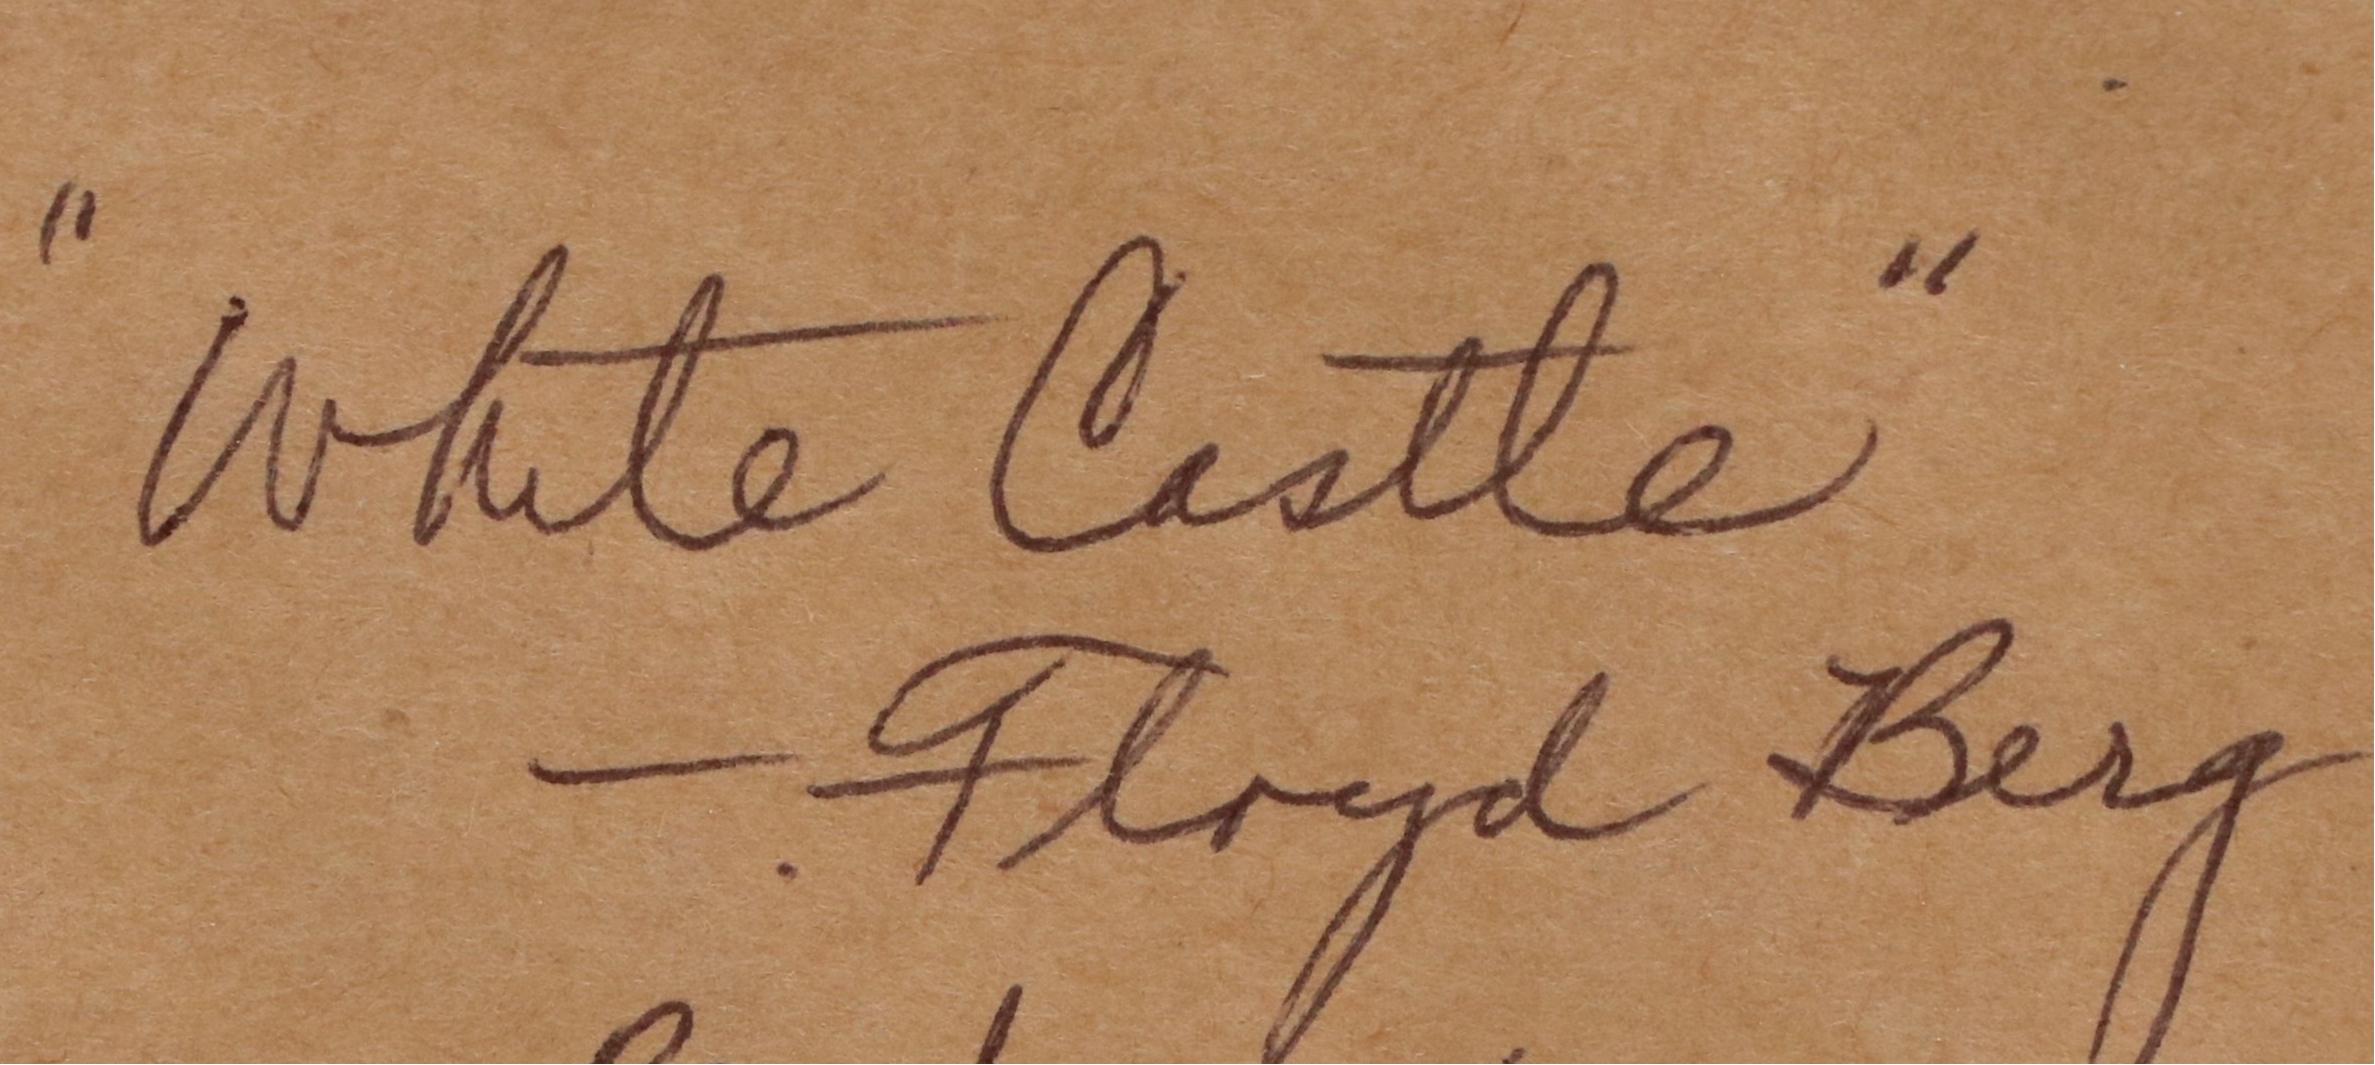 "White Castle"
— Floyd Berg